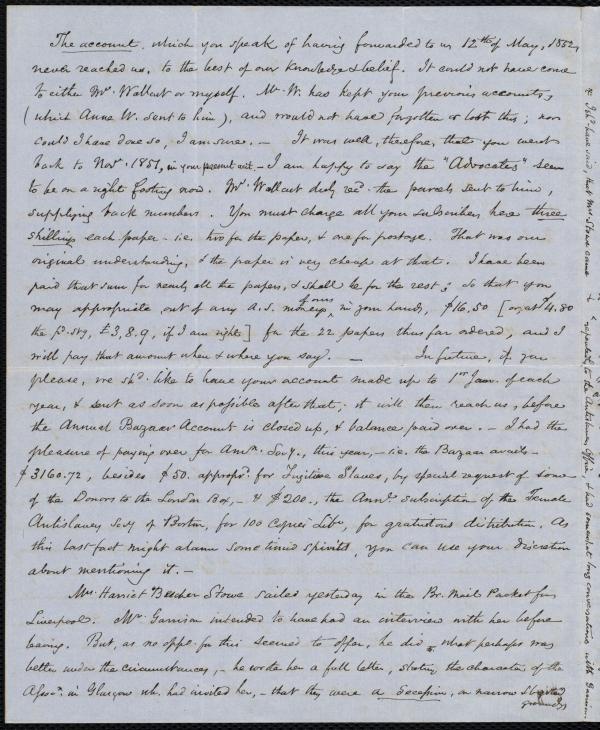 The account, which you speak of having forwarded to us 12th of May, 1852,
never reached us, to the best of our knowledge & belief. It could not have come
to either Mr. Wallcut or myself. Mr. W. has kept your previous accounts,
(which Anne W. sent to him), and would not have forgotten or lost this; nor
could I have done so, I am sure. — It was well, therefore, that you went
back to Novr. 1851, in your present acct. — I am happy to say the "Advocates" seem
to be on a right footing now. Mr. Wallcut duly recd. the parcels sent to him,
supplying back numbers. You must charge all your subscribers here three
shillings each paper - i.e. two for the paper, & one for postage. That was our
original understanding, & the paper is very cheap at that. I have been
paid that sum for nearly all the papers, & shall be for the rest; so that you
may appropriate out of any A.S. moneys of ours in your hands, $16.50 [or, at $4.80
the pd. stg, £3,8.9, if I am right] for the 22 papers thus far ordered, and I
will pay that amount when & where you say. — In future, if you
please, we shd. like to have your accounts made up to 1st Jany. of each
year, & sent as soon as possible after that; it will then reach us, before
the Annual Bazaar Account is closed up, & balance paid over. - I had the
pleasure of paying over for Amn. Socy., this year, - i.e. the Bazaar avails -
$3160.72, besides $50. appropd. for Fugitive Slaves, by special request of some
of the Donors to the London Box, - & $200., the Annl. subscription of the Female
Antislavery Socy of Boston, for 100 Copies Libr., for gratuitous distribution. As
this last fact might alarm some timid spirits, you can use your discretion
about mentioning it. —
Mrs. Harriet Beecher Stowe sailed yesterday in the Br. Mail Packet for
Liverpool. Mr. Garrison intended to have had an interview with her before
leaving. But, as no oppy. for this seemed to offer, he did, what perhaps was
better under the circumstances, - he wrote her a full letter, stating the character of the
Assocn. in Glasgow wh. had invited her, - that they were a Secession, on narrow & bigoted
grounds,
I shd. have said, that Mrs. Stowe came to the Antislavery Office, & had somewhat long conversations with Garrison.